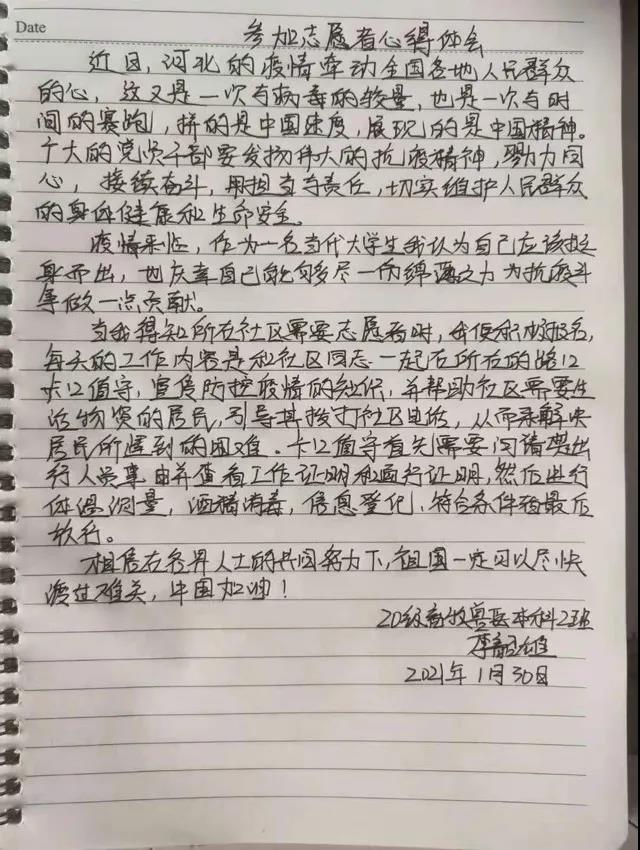 Date
参加志愿者心得体会
近日,河北的疫情牵动全国各地人民群众
的心,这又是一次与病毒的较量,也是一次与时
间的赛跑,拼的是中国速度,展现的是中国精神。
广大的党员干部要发扬伟大的抗疫精神,勠力同
心,接续奋斗,用担当与责任,切实维护人民群众
的身体健康和生命安全。
疫情来临,作为一名当代大学生我认为自己应该挺
身而出,也庆幸自己能够尽一份绵薄之力为抗疫斗
争做一点贡献。
当我得知所在社区需要志愿者时,我便积极报名,
每天的工作内容是和社区同志一起在所在的路口
卡口值守,宣传防控疫情的知识,并帮助社区需要生
活物资的居民,引导其拨打社区电话,从而来解决
居民所遇到的困难。卡口值守首先需要问清楚出
行人员事由并查看工作证明和通行证明,然后进行
体温测量,酒精消毒,信息登记,符合条件确最后
放行。
相信在各界人士的共同努力下,祖国一定可以尽快
渡过难关,中国加油!
20级畜牧兽医本科2班
2021年1月30日